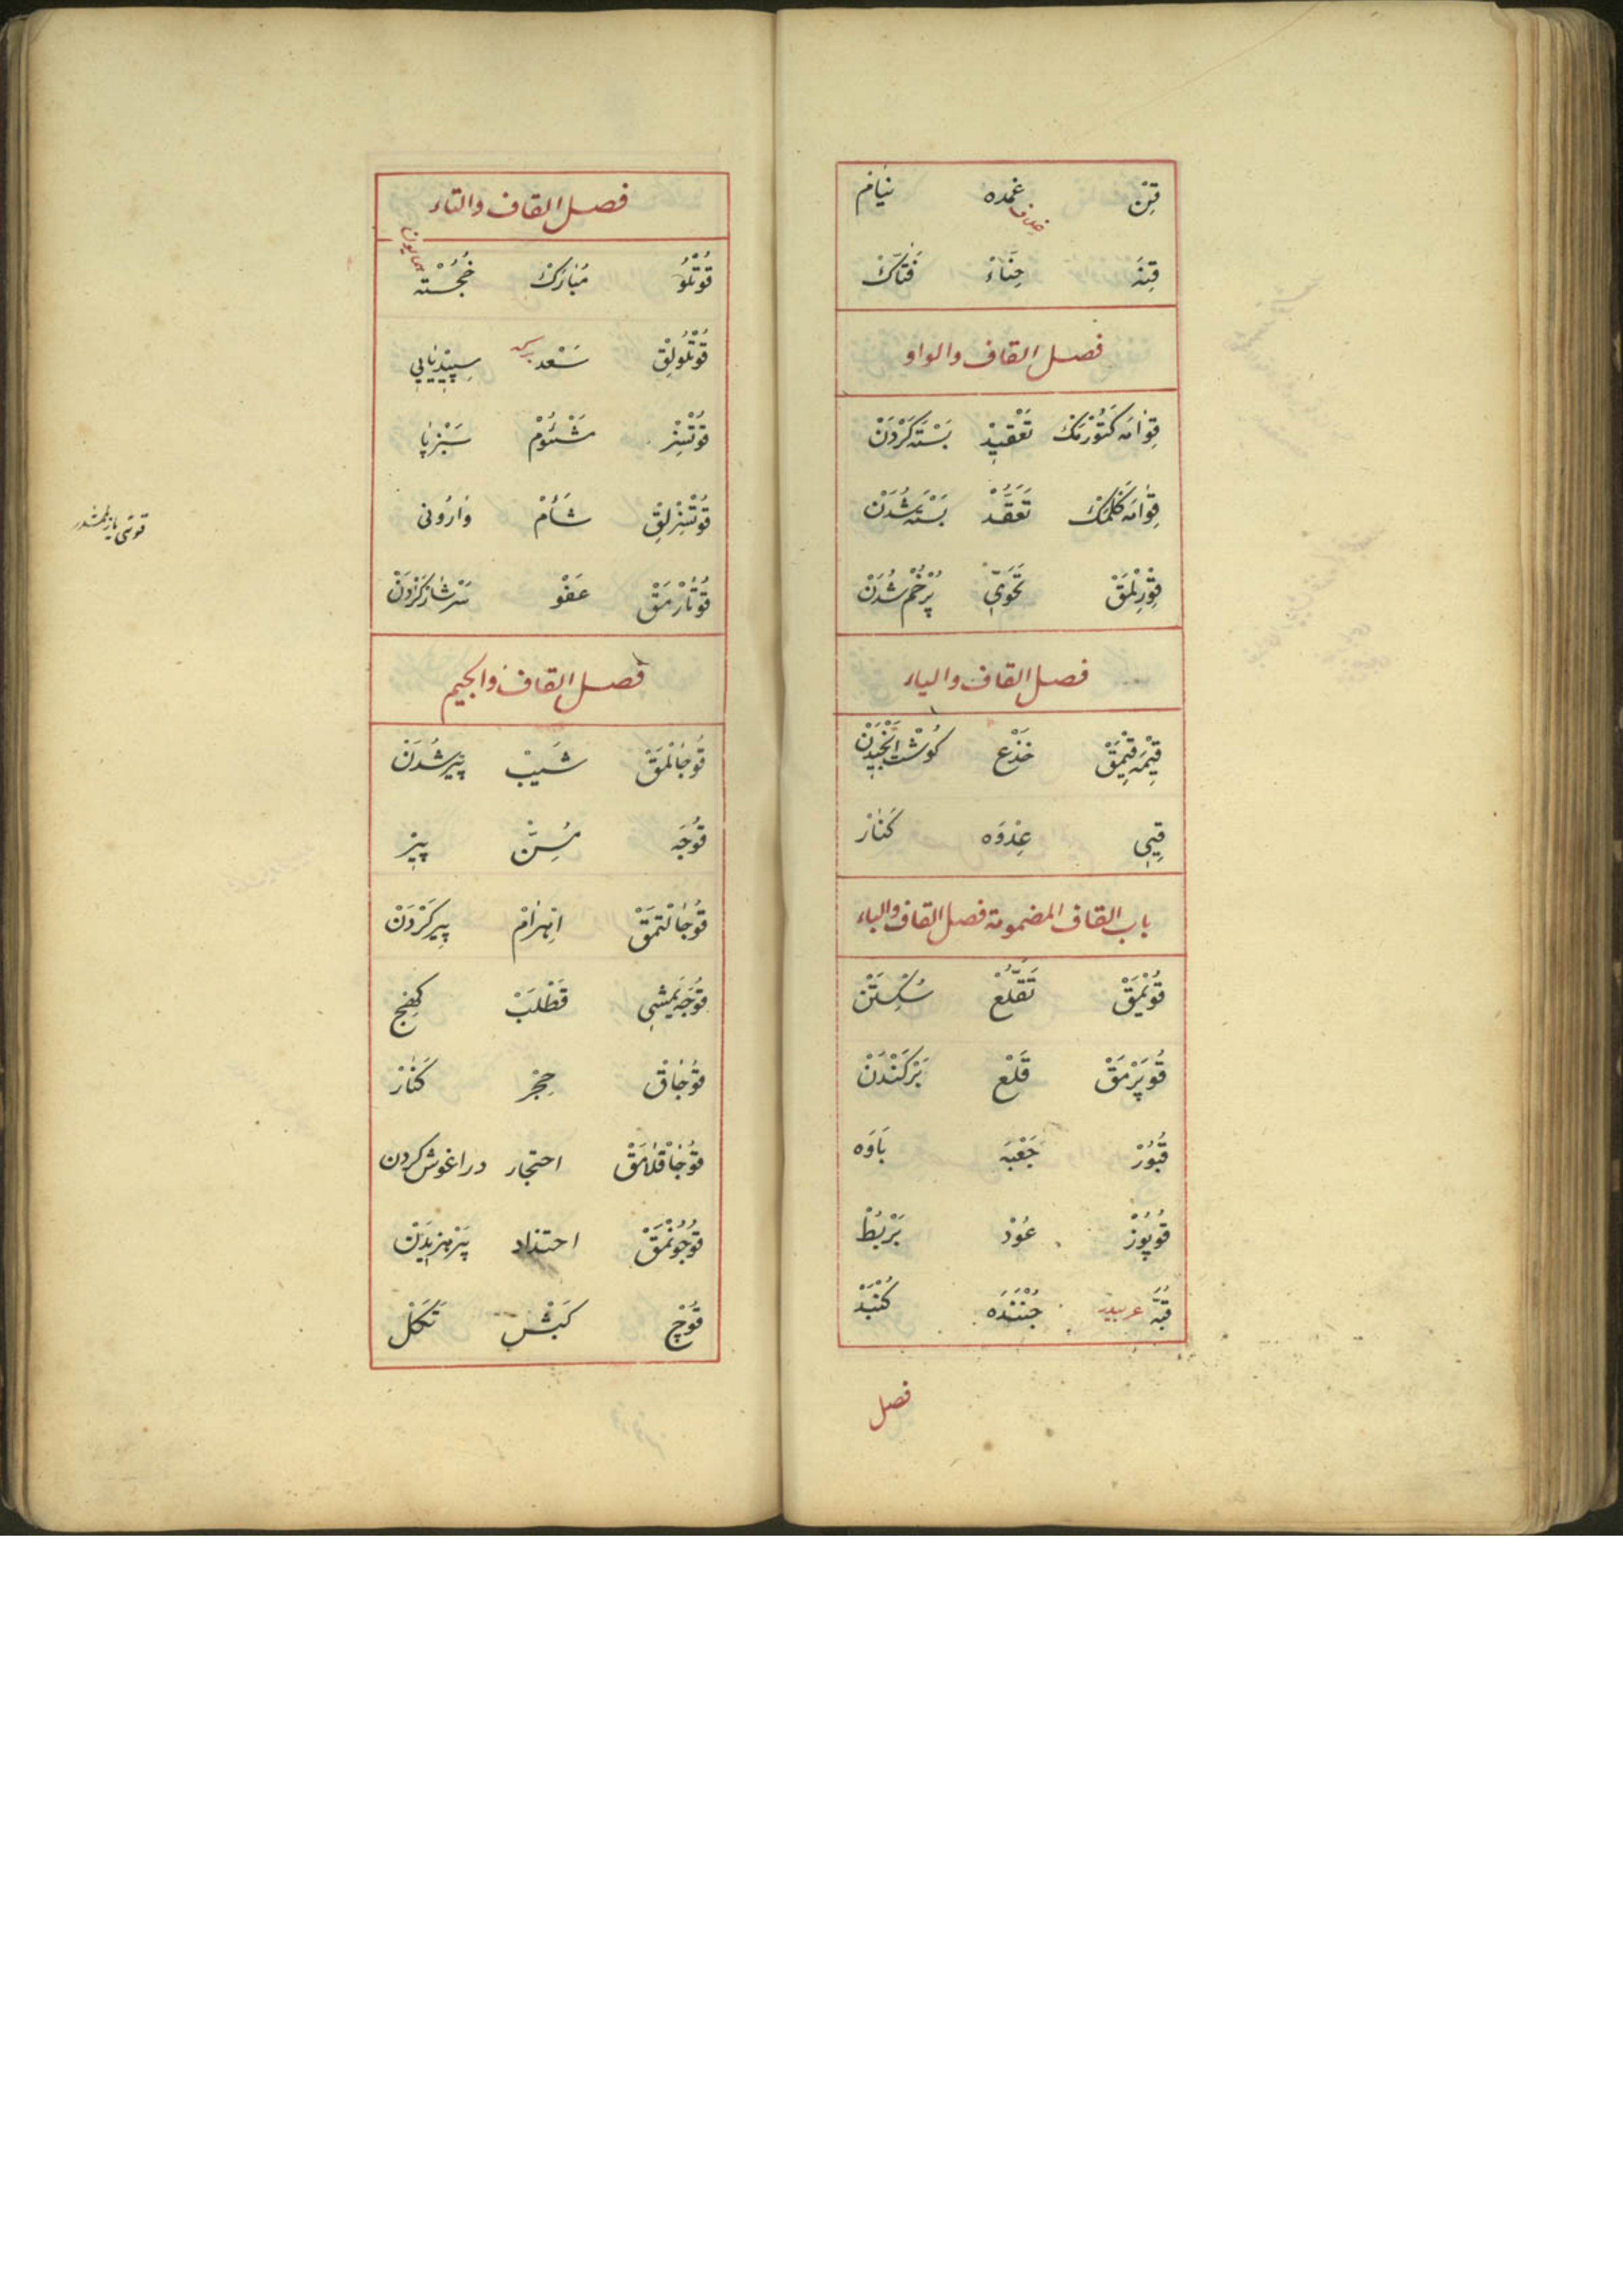 قِنْ غمده نيام
خلاف
قِنَه حِنَّاءْ فَتَاكْ
فصل القاف والواو
قِوَامَه كَتُورْمَكْ تَعْقِيدْ بَسْتَه كَرْدَنْ
قِوَامَه كَلْمَكْ تَعَقُّدْ بَسْتَه شُدَنْ
قِوْرِلْمَقْ تَحَوِّي پُرْخَمْ شُدَنْ
فصل القاف والياء
قِيْمَه قِيْمَقْ خَذْع كُوشْت اَنْجِيدَنْ
قِيِي عِدْوَه كَنَارْ
باب القاف المضمومة فصل القاف والباء
قُوپْمَقْ تَقَلُّعْ سُكِسْتَنْ
قُوپَرْمَقْ قَلْع بَرْكَنْدَنْ
قُبُورْ جَعْبَه بَاوَه
قُوپُوزْ عُودْ بَرْبُطْ
قُبَّه عربيدر جُنْبُدَه كُنْبَدْ
فصل
فصل القاف والتاء
قُوتْلُو مُبَارَكْ خُجَسْتَه
همايون
قُوتْلُولِقْ سَعْد سِپِيدْپَايِي
قُوتْسِزْ مَشْئُومْ سَبْزپَا
قُوتْسِزْلِقْ شَأْمْ وَارُونِي
قُوتَارْمَقْ عَفْو سَرْشَارْ كَرْدَنْ
فصل القاف والجيم
قُوجَالْمَقْ شَيْبْ پِيرْ شُدَنْ
قُوجَه مُسِنّْ پِيرْ
قُوجَالْتمَقْ اِهْرَامْ پِيرْ كَرْدَنْ
قُوجَه يَمِشِي قَطْلَبْ كهج
قُوجَاقْ حِجْر كَنَارْ
قُوجَاقْلَامَقْ احتجار در اغوش كردن
قُوجُونْمَقْ احتذاد پَرْهِيزِيدَنْ
قُوچْ كَبْشْ تَكَلْ